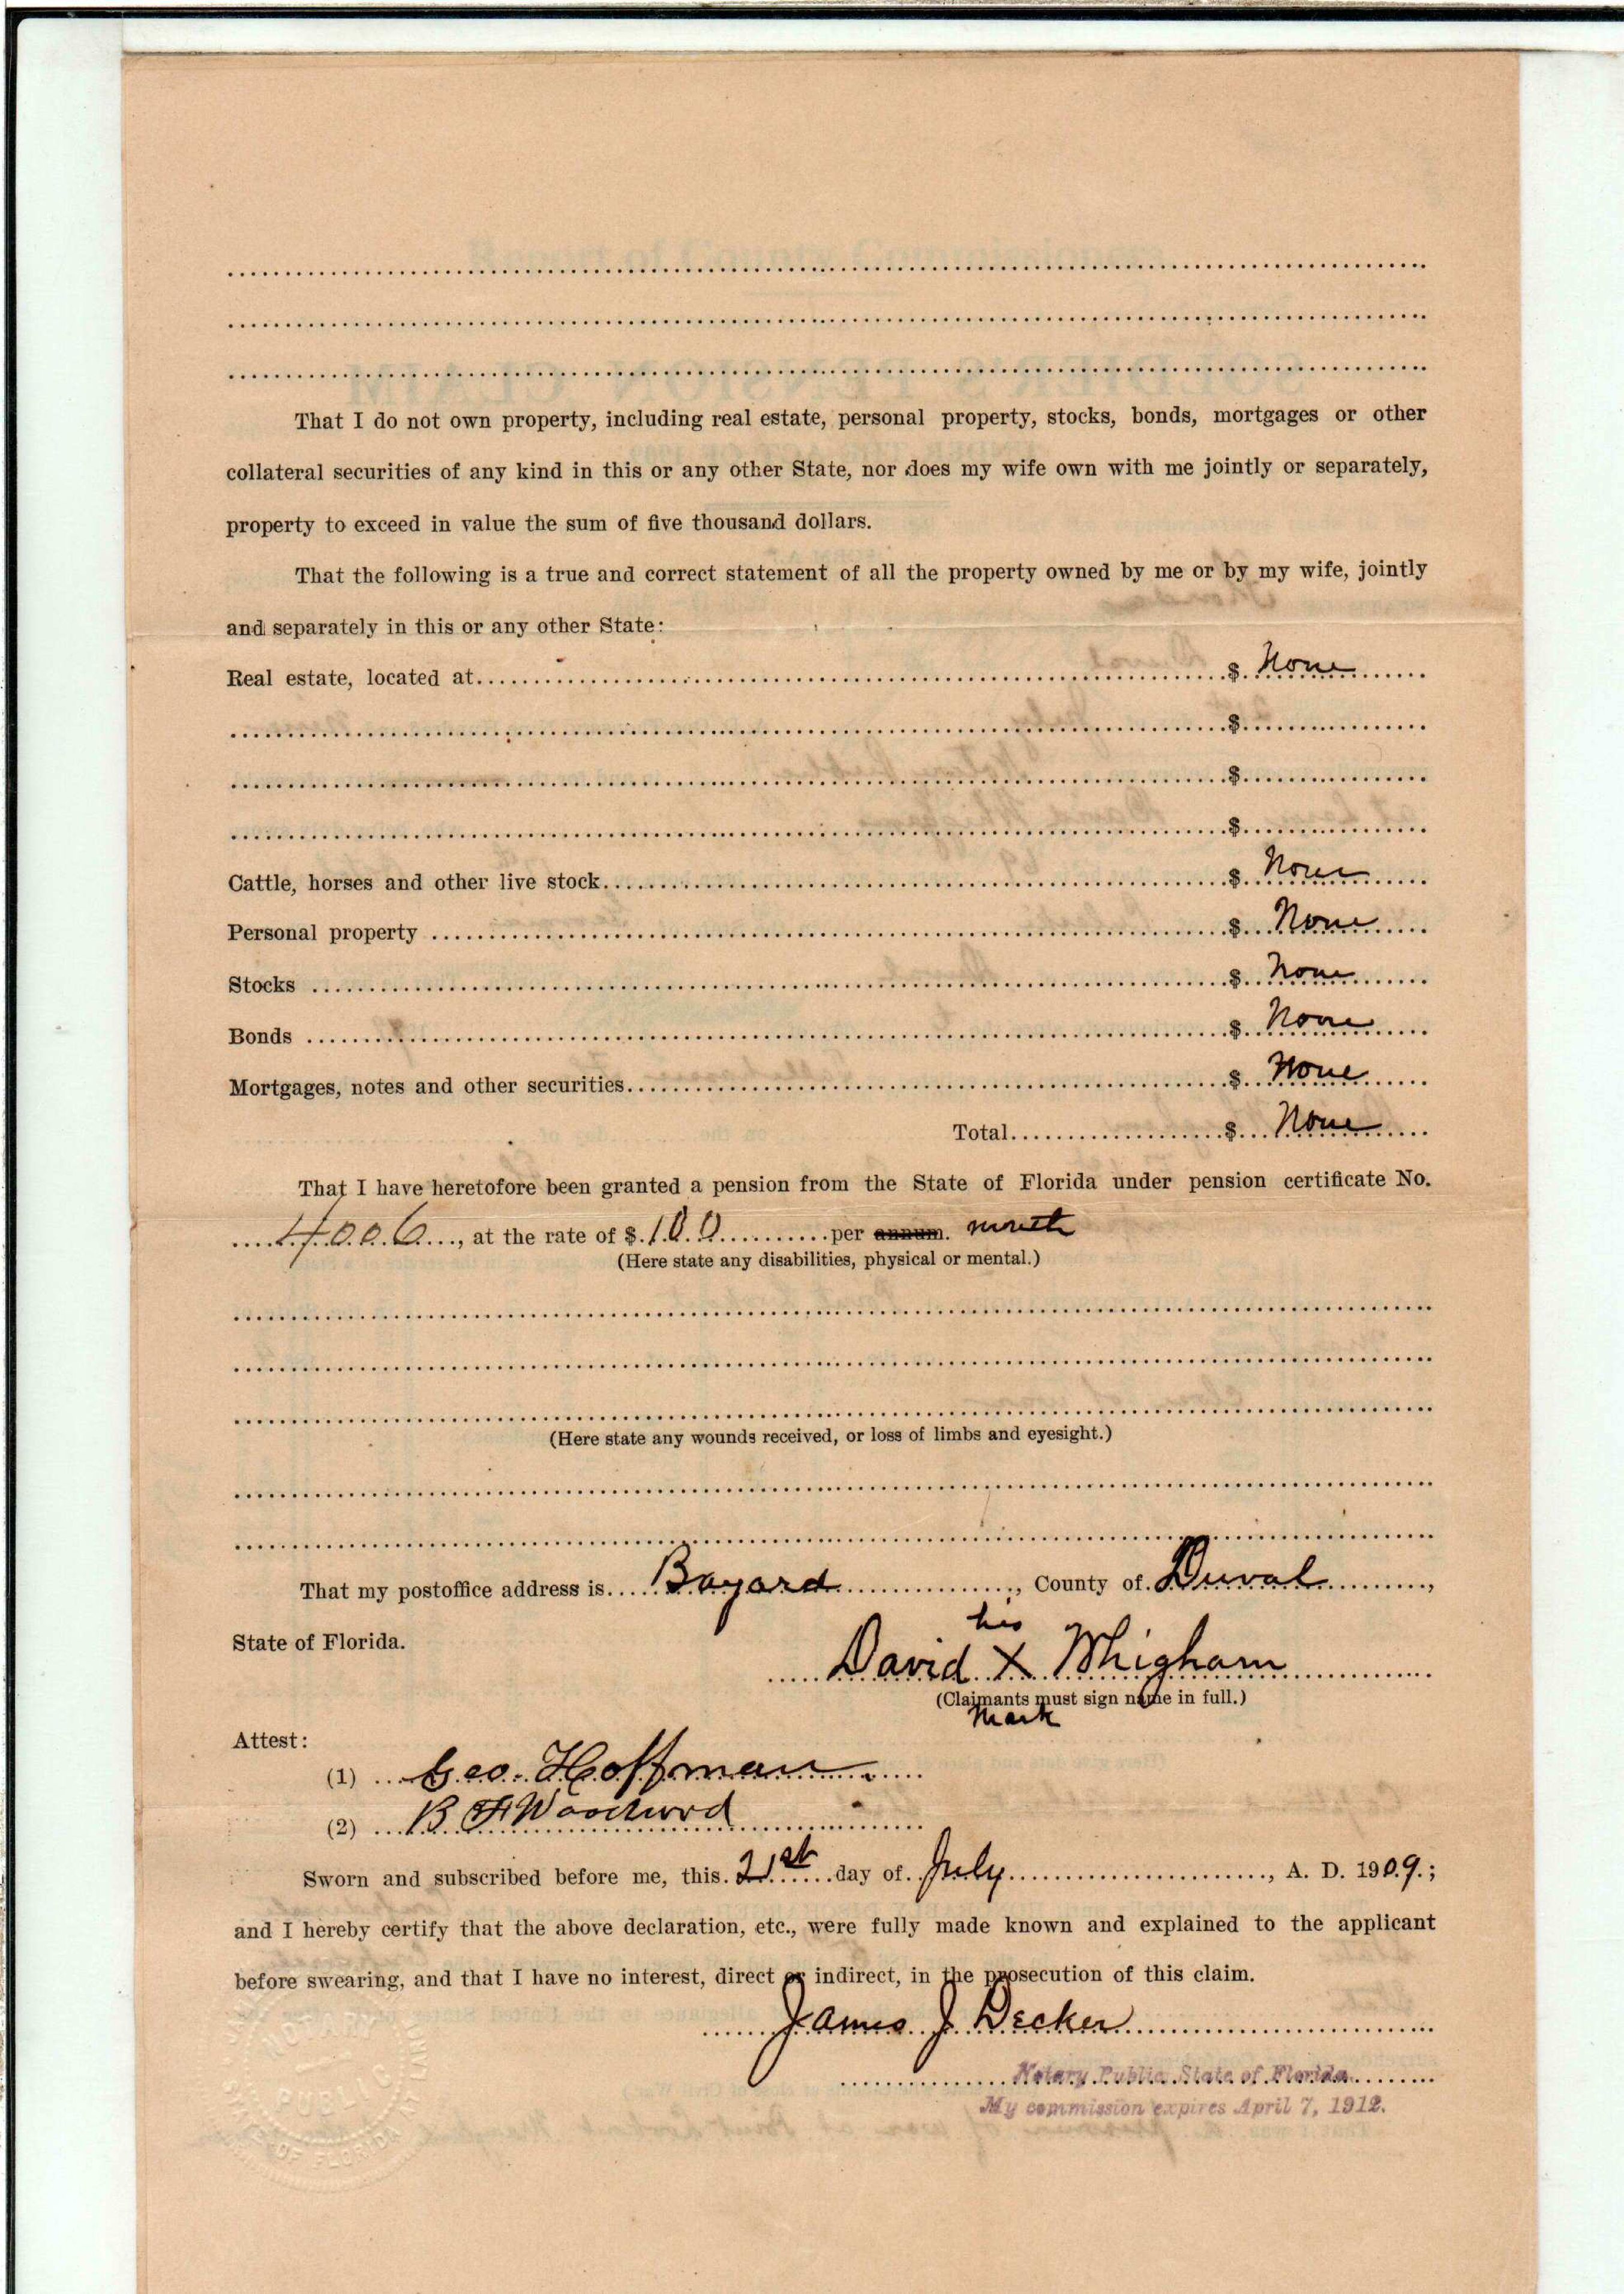 That I do not own property, including real estate, personal property, stocks, bonds, mortgages or other
collateral securities of any kind in this or any other State, nor does my wife own with me jointly or separately,
property to exceed in value the sum of five thousand dollars.
That the following is a true and correct statement of all the property owned by me or by my wife, jointly
and separately in this or any other State:
Real estate, located at $ None
$
$
$
Cattle, horses and other live stock $ None
Personal property $ None
Stocks $ None
Bonds $ None
Mortgages, notes and other securities $ None
Total $ None
That I have heretofore been granted a pension from the State of Florida under pension certificate No.
4006, at the rate of $ 100 per annum. month
(Here state any disabilities, physical or mental.)
(Here state any wounds received, or loss of limbs and eyesight.)
That my postoffice address is Bayard, County of Duval,
State of Florida.
his
David X Whigham
(Claimants must sign name in full.)
mark
Attest:
(1) Geo. Hoffman
(2) B F Woodward
Sworn and subscribed before me, this 21st day of July, A. D. 1909.;
and I hereby certify that the above declaration, etc., were fully made known and explained to the applicant
before swearing, and that I have no interest, direct or indirect, in the prosecution of this claim.
James J. Decker
Notary Public, State of Florida
My commission expires April 7, 1912.
NOTARY
PUBLIC
OF FLORIDA